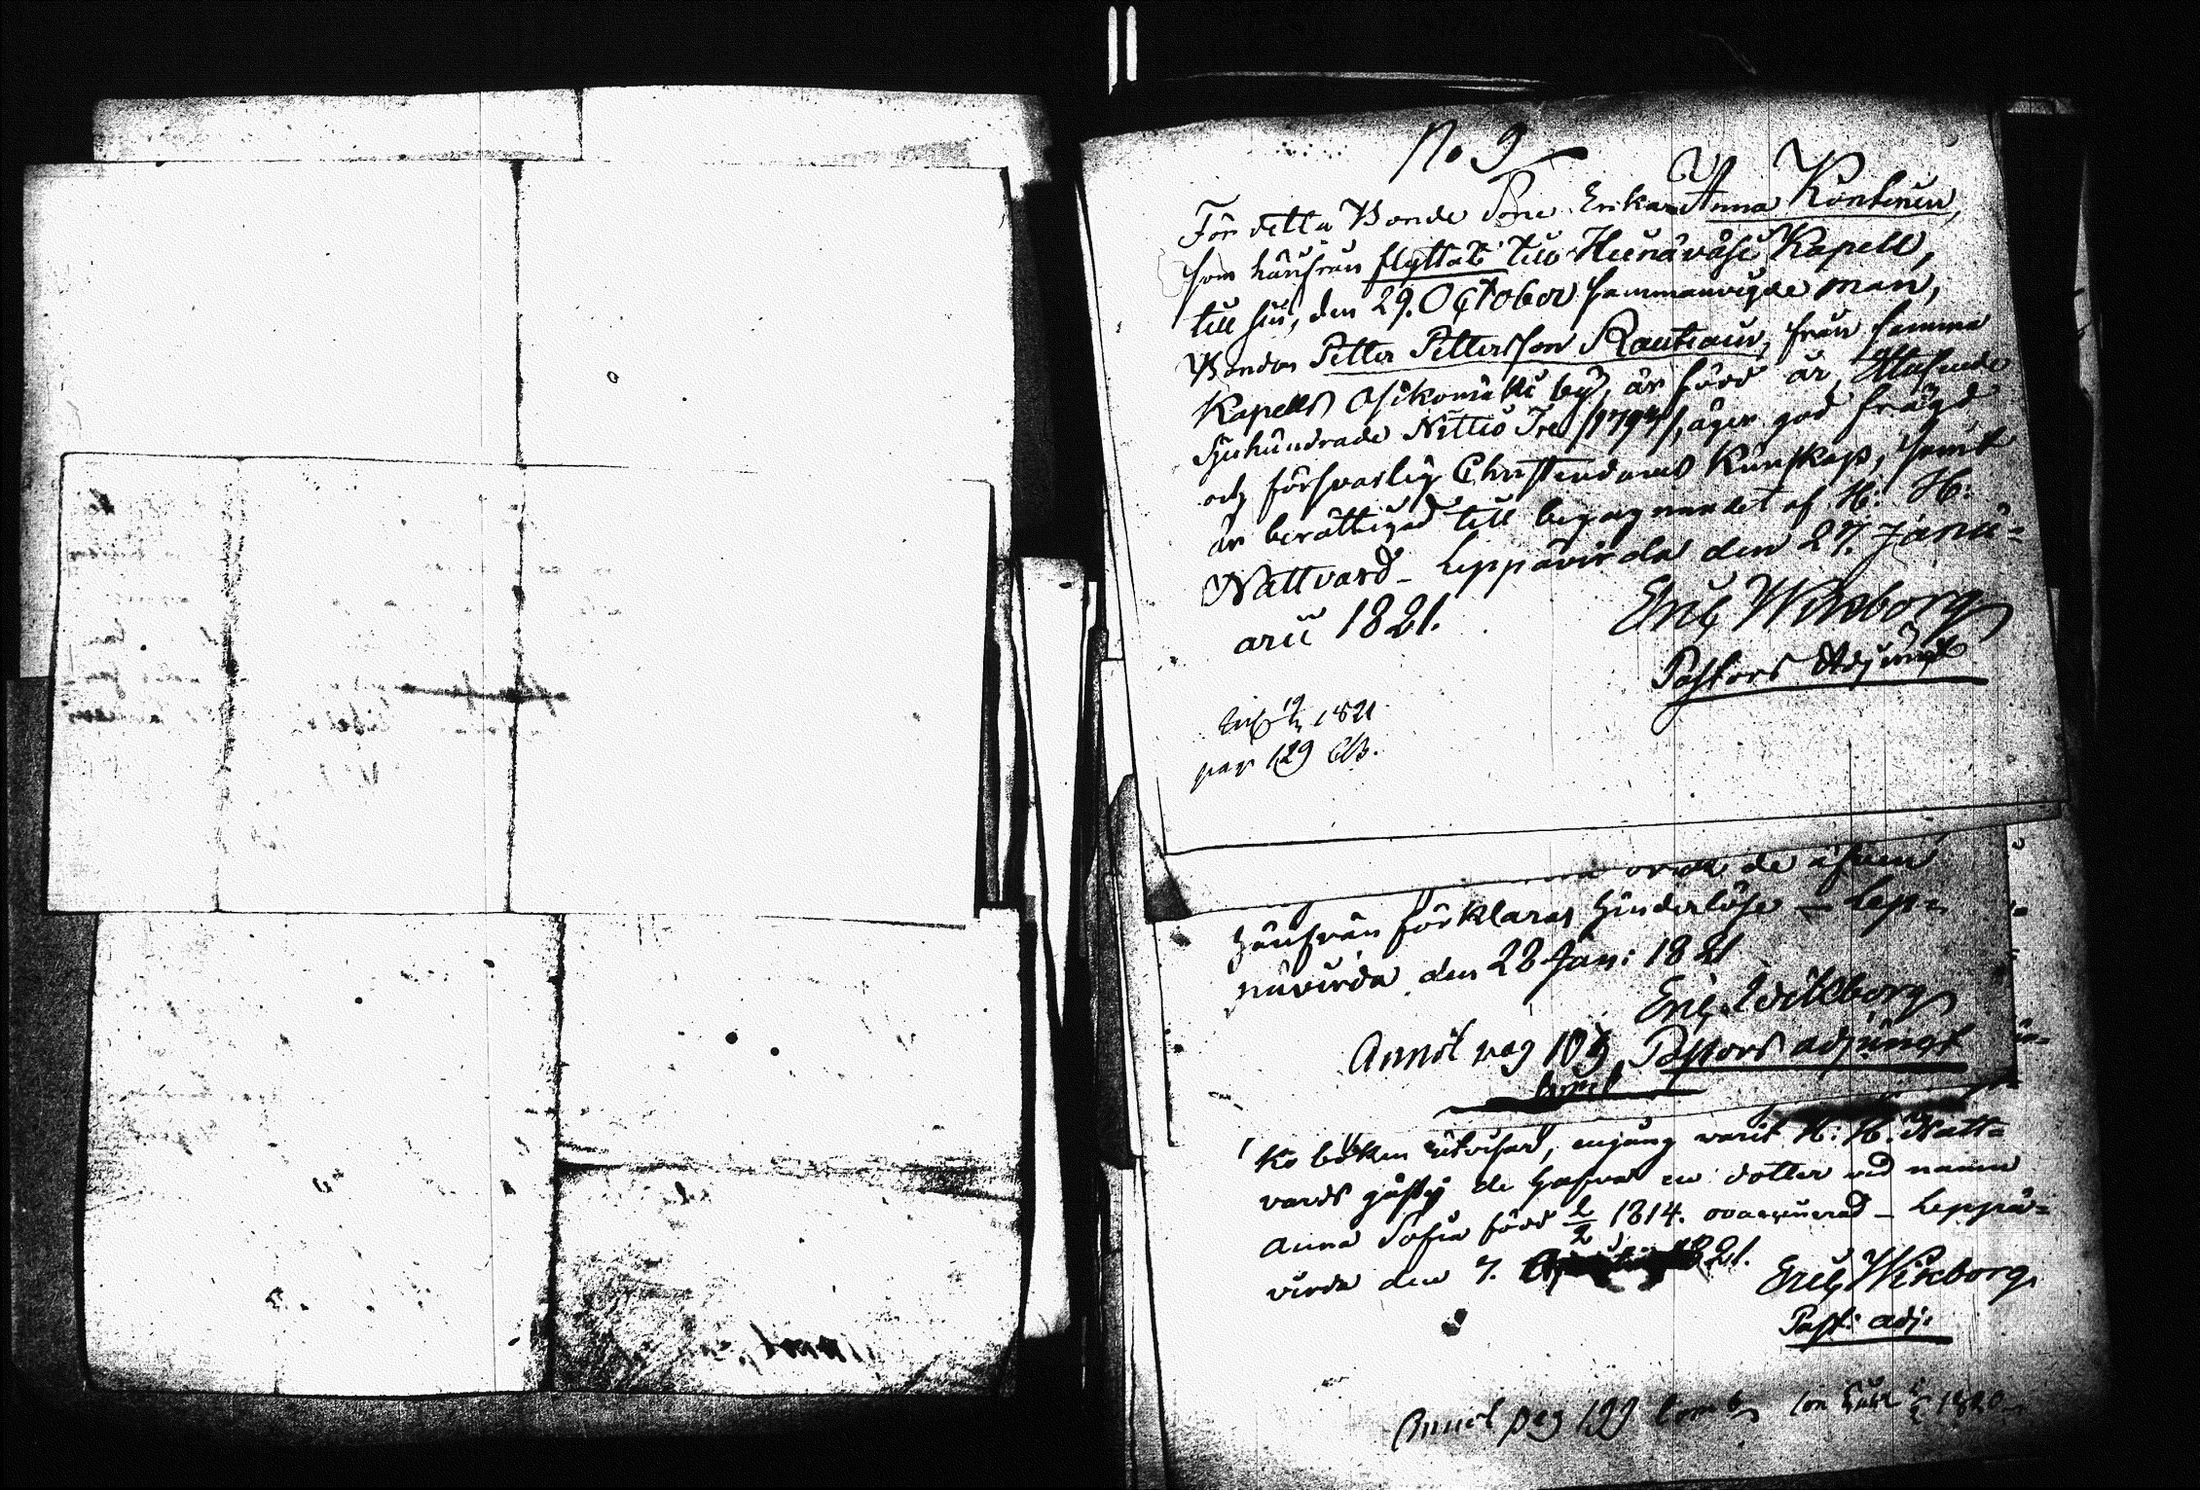 No 9
För detta Bonde Enkan Anna Kontinen,
som härifrån flyttat till Heinävesi Kapell,
till sin, den 29. October sammanvigde man,
Bonden Petter Pettersson Rautiain, från samma
Kapells Asikomäki by, är född år Ettusende
Sjuhundrade Nittio Tre /1793/, äger god frägd
och försvarlig Christendoms Kunskap, samt
är berättigad till begagnandet af H: H:
Nattvard – Leppävirda den 27. Janu-
arii 1821.
Eric Wikborg
Pastors Adjunct
1821
pag 129
de äfven
härifrån förklaras hinderlöse – Lep-
pävirda den 28 Jan: 1821
Eric Wikborg
Annot pag 103 Pastors adjungt
ko boken utvisar, engång varit H: H. Natt-
vards gäster de hafva en dotter vid namn
Anna Sofia född 2/2 1814. ovaccinerad – Leppä-
virda den 7. 1821.
Eric Wikborg
Past: adj:
Annot pag 199 1820